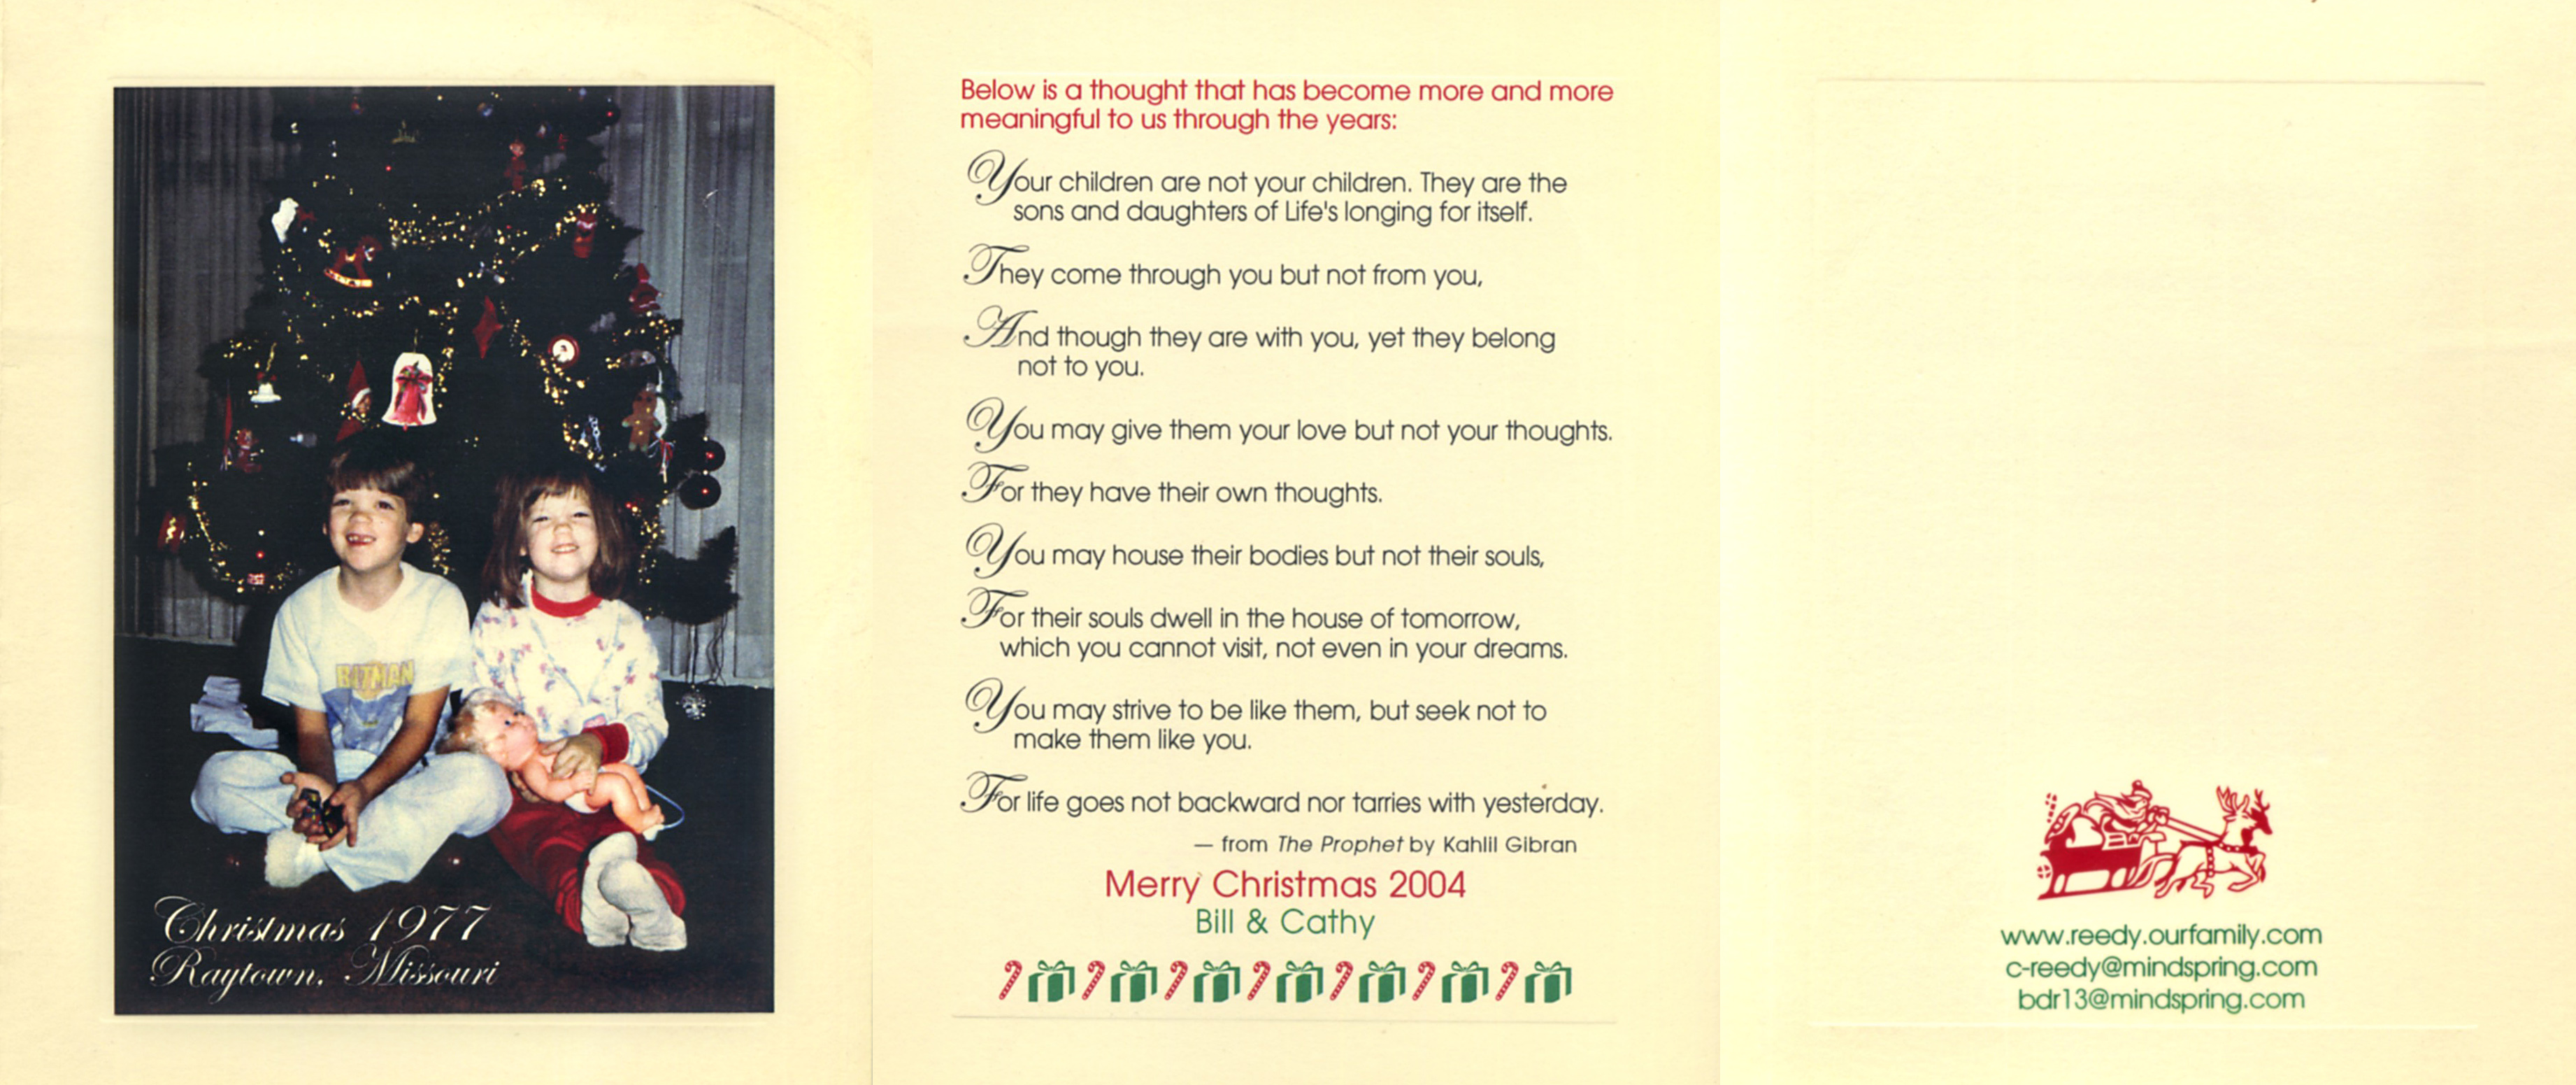 Christmas 1977
Raytown, Missouri
BATMAN
Below is a thought that has become more and more
meaningful to us through the years:
Your children are not your children. They are the
sons and daughters of Life's longing for itself.
They come through you but not from you,
And though they are with you, yet they belong
not to you.
You may give them your love but not your thoughts.
For they have their own thoughts.
You may house their bodies but not their souls,
For their souls dwell in the house of tomorrow,
which you cannot visit, not even in your dreams.
You may strive to be like them, but seek not to
make them like you.
For life goes not backward nor tarries with yesterday.
— from The Prophet by Kahlil Gibran
Merry Christmas 2004
Bill & Cathy
www.reedy.ourfamily.com
c-reedy@mindspring.com
bdr13@mindspring.com